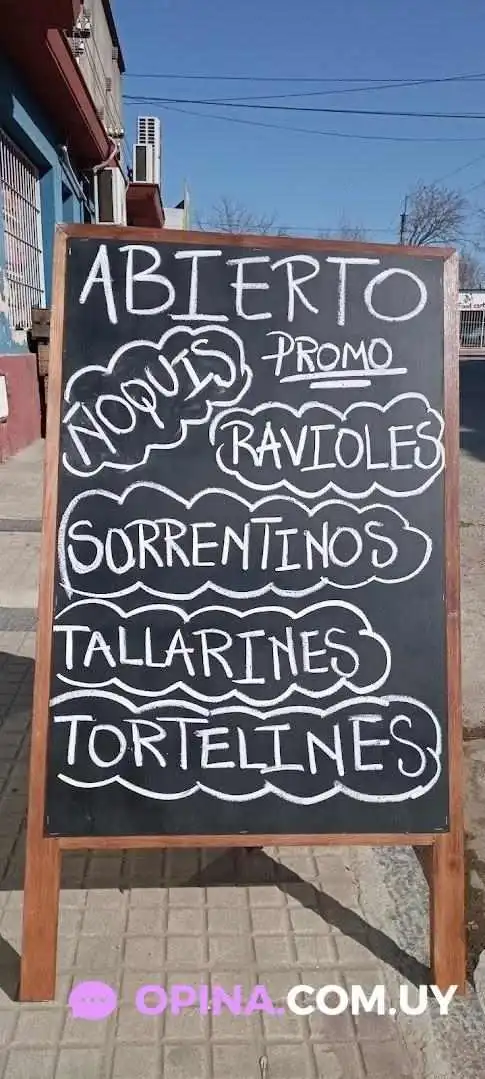 ABIERTO
ÑOQUIS
PROMO
RAVIOLES
SORRENTINOS
TALLARINES
TORTELINES
OPINA.COM.UY